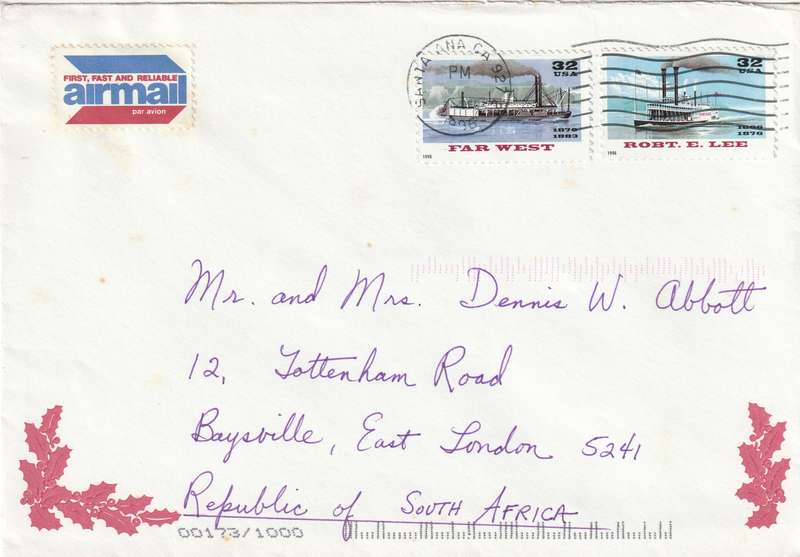 FIRST, FAST AND RELIABLE
airmail
par avion
SANTA ANA, CA 92
PM
32
USA
1870
1883
FAR WEST
1996
32
USA
1866
1876
ROBT. E. LEE
1996
Mr. and Mrs. Dennis W. Abbott
12, Tottenham Road
Baysville, East London 5241
Republic of SOUTH AFRICA
00173/1000